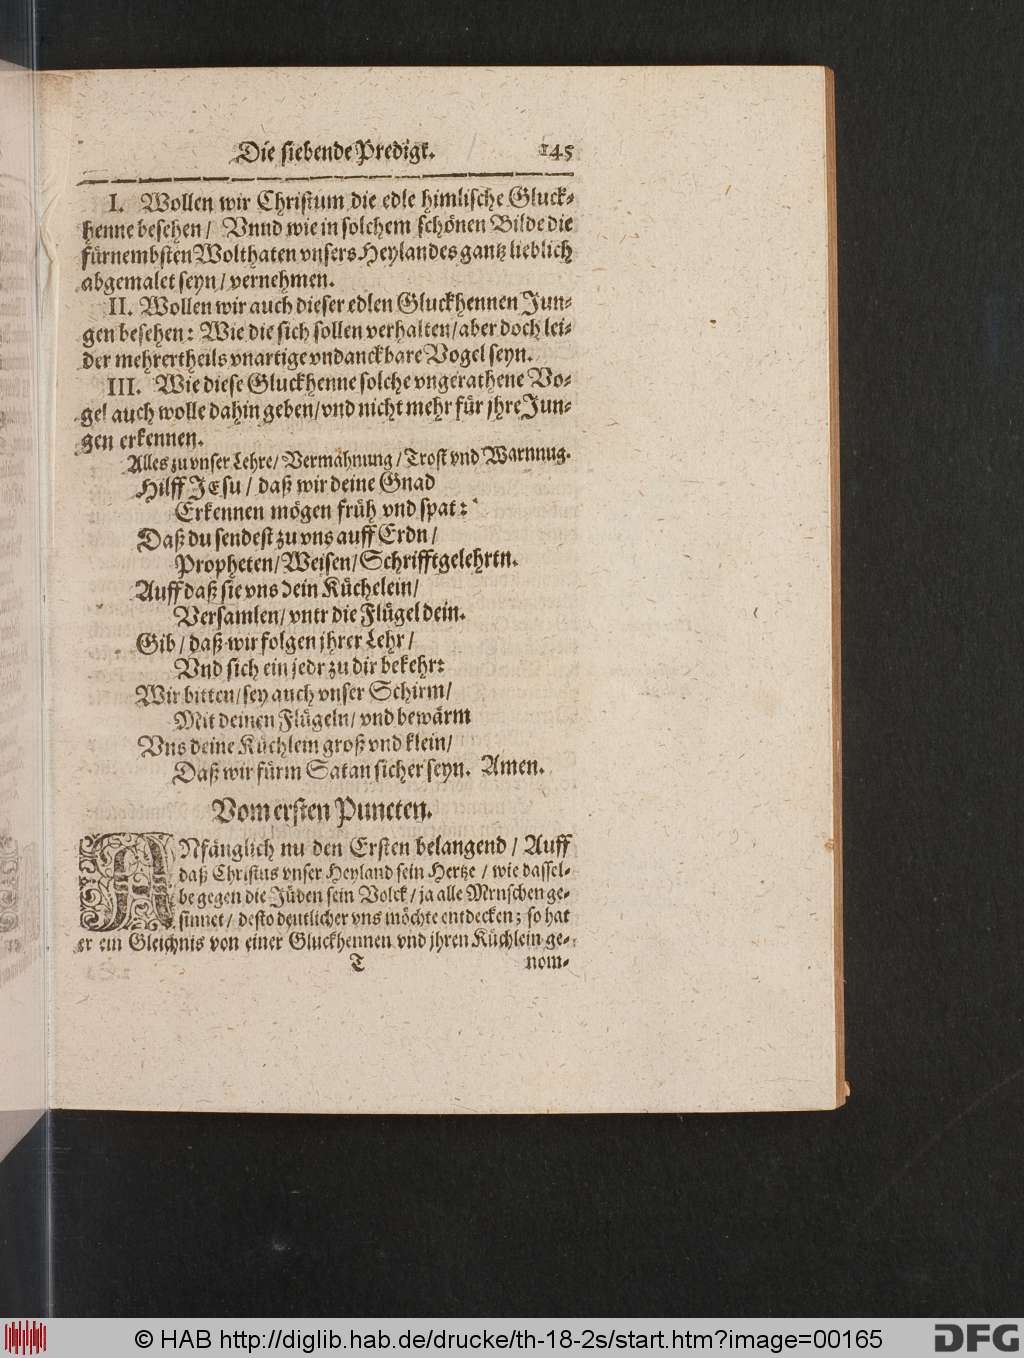 Die siebende Predigt. 145
I. Wollen wir Christum die edle himlische Gluck-
henne besehen / Vnnd wie in solchem schönen Bilde die
fürnembsten Wolthaten vnsers Heylandes gantz lieblich
abgemalet seyn / vernehmen.
II. Wollen wir auch dieser edlen Gluckhennen Jun-
gen besehen: Wie die sich sollen verhalten / aber doch lei-
der mehrertheils vnartige vndanckbare Vogel seyn.
III. Wie diese Gluckhenne solche vngerathene Vo-
gel auch wolle dahin geben / vnd nicht mehr für jhre Jun-
gen erkennen.
Alles zu vnser Lehre / Vermahnung / Trost vnd Warnnug.
Hilff JEsu / daß wir deine Gnad
Erkennen mögen früh vnd spat:
Daß du sendest zu vns auff Erdn /
Propheten / Weisen / Schrifftgelehrtn.
Auff daß sie vns dein Küchelein /
Versamlen / vntr die Flügel dein.
Gib / daß wir folgen jhrer Lehr /
Vnd sich ein jedr zu dir bekehr:
Wir bitten / sey auch vnser Schirm /
Mit deinen Flügeln / vnd bewärm
Vns deine Küchlein groß vnd klein /
Daß wir fürm Satan sicher seyn. Amen.
Vom ersten Puncten.
ANfänglich nu den Ersten belangend / Auff
daß Christus vnser Heyland sein Hertze / wie dassel-
be gegen die Jüden sein Volck / ja alle Mrnschen ge-
sinnet / desto deutlicher vns möchte entdecken; so hat
er ein Gleichnis von einer Gluckhennen vnd jhren Küchlein ge-
T nom-
© HAB http://diglib.hab.de/drucke/th-18-2s/start.htm?image=00165
DFG